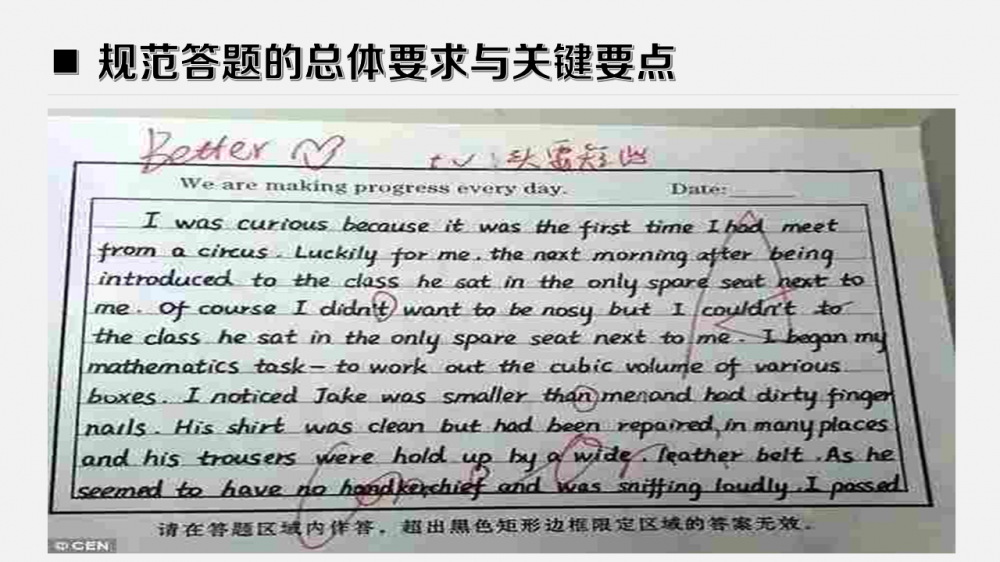 规范答题的总体要求与关键要点
Better
We are making progress every day. Date:
I was curious because it was the first time I had meet
from a circus. Luckily for me. the next morning after being
introduced to the class he sat in the only spare seat next to
me. Of course I didn't want to be nosy but I couldn't to
the class he sat in the only spare seat next to me. I began my
mathematics task — to work out the cubic volume of various
boxes. I noticed Jake was smaller than menand had dirty finger
nails. His shirt was clean but had been repaired, in many places
and his trousers were hold up by a wide. leather belt. As he
seemed to have no handkerchief and was sniffing loudly. I passed
请在答题区域内作答，超出黑色矩形边框限定区域的答案无效。
© CEN